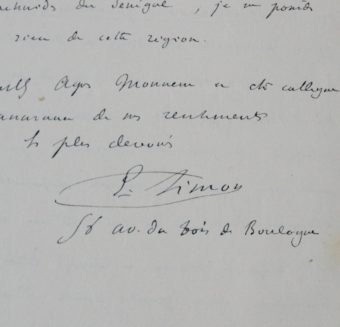 du Sénégal, je ne possède
rien de cette région.
Agréez Monsieur et cher collègue
de mes sentiments
les plus dévoués
E. Simon
56 av. du Bois de Boulogne